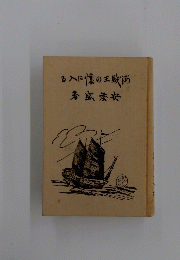 海賊王の懐に入る
安藤盛著